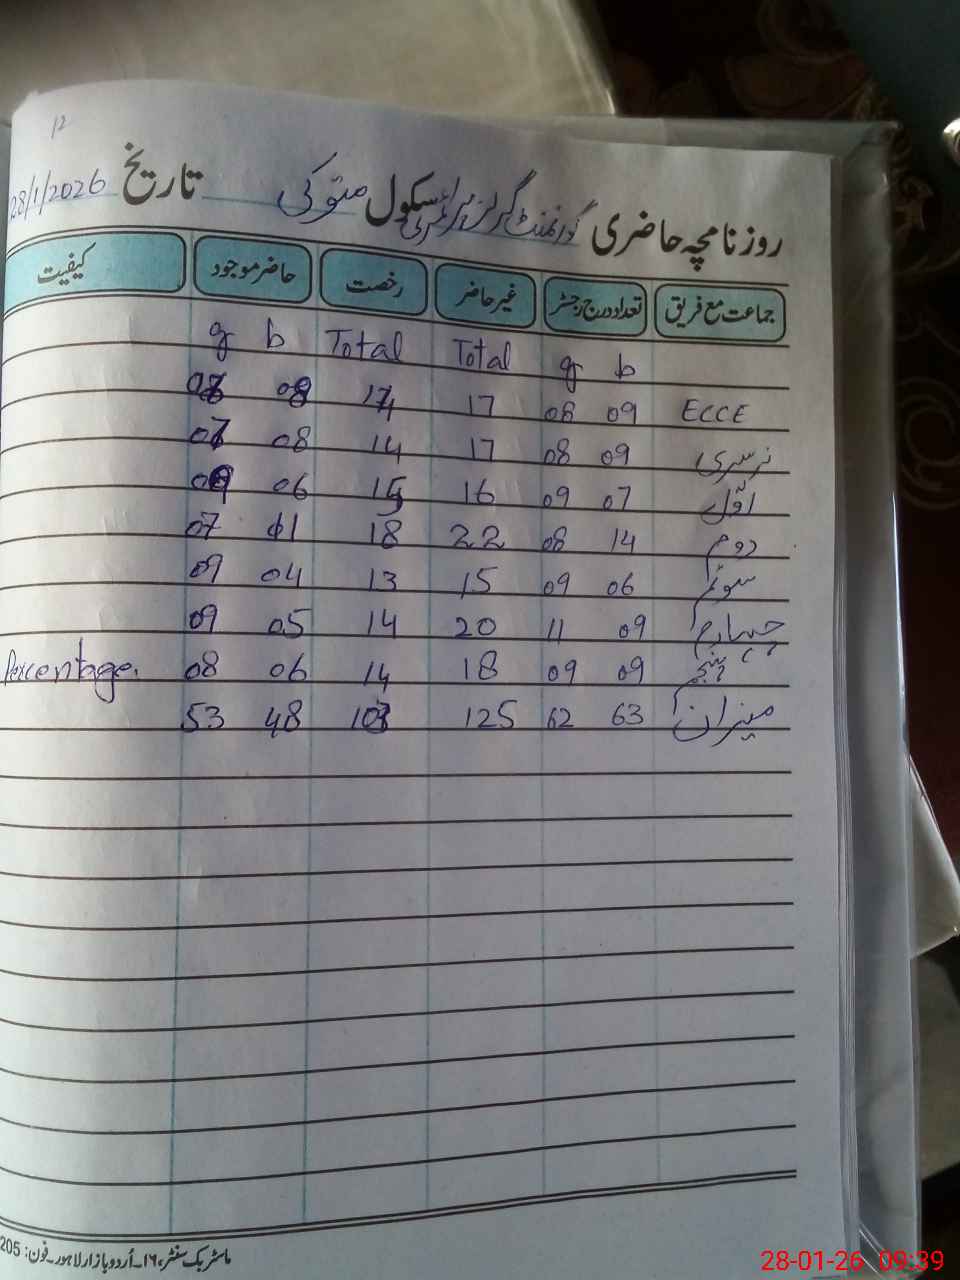 12
روزنامچہ حاضری گورنمنٹ گرلز پرائمری سکول متوکی تاریخ 28/1/2026
جماعت مع فریق تعداد درج رجسٹر غیر حاضر رخصت حاضر موجود کیفیت
g b Total Total g b
08 14 17 08 09 ECCE
07 08 14 17 08 09 نرسری
09 06 15 16 09 07 اوّل
07 11 18 22 08 14 دوم
09 04 13 15 09 06 سوئم
09 05 14 20 11 09 چہارم
Percentage. 08 06 14 18 09 09 پنجم
53 48 125 62 63 میزان
ماسٹر بک سنٹر، ۱۶۔اُردو بازار لاہور۔فون: 205
28-01-26 09:39